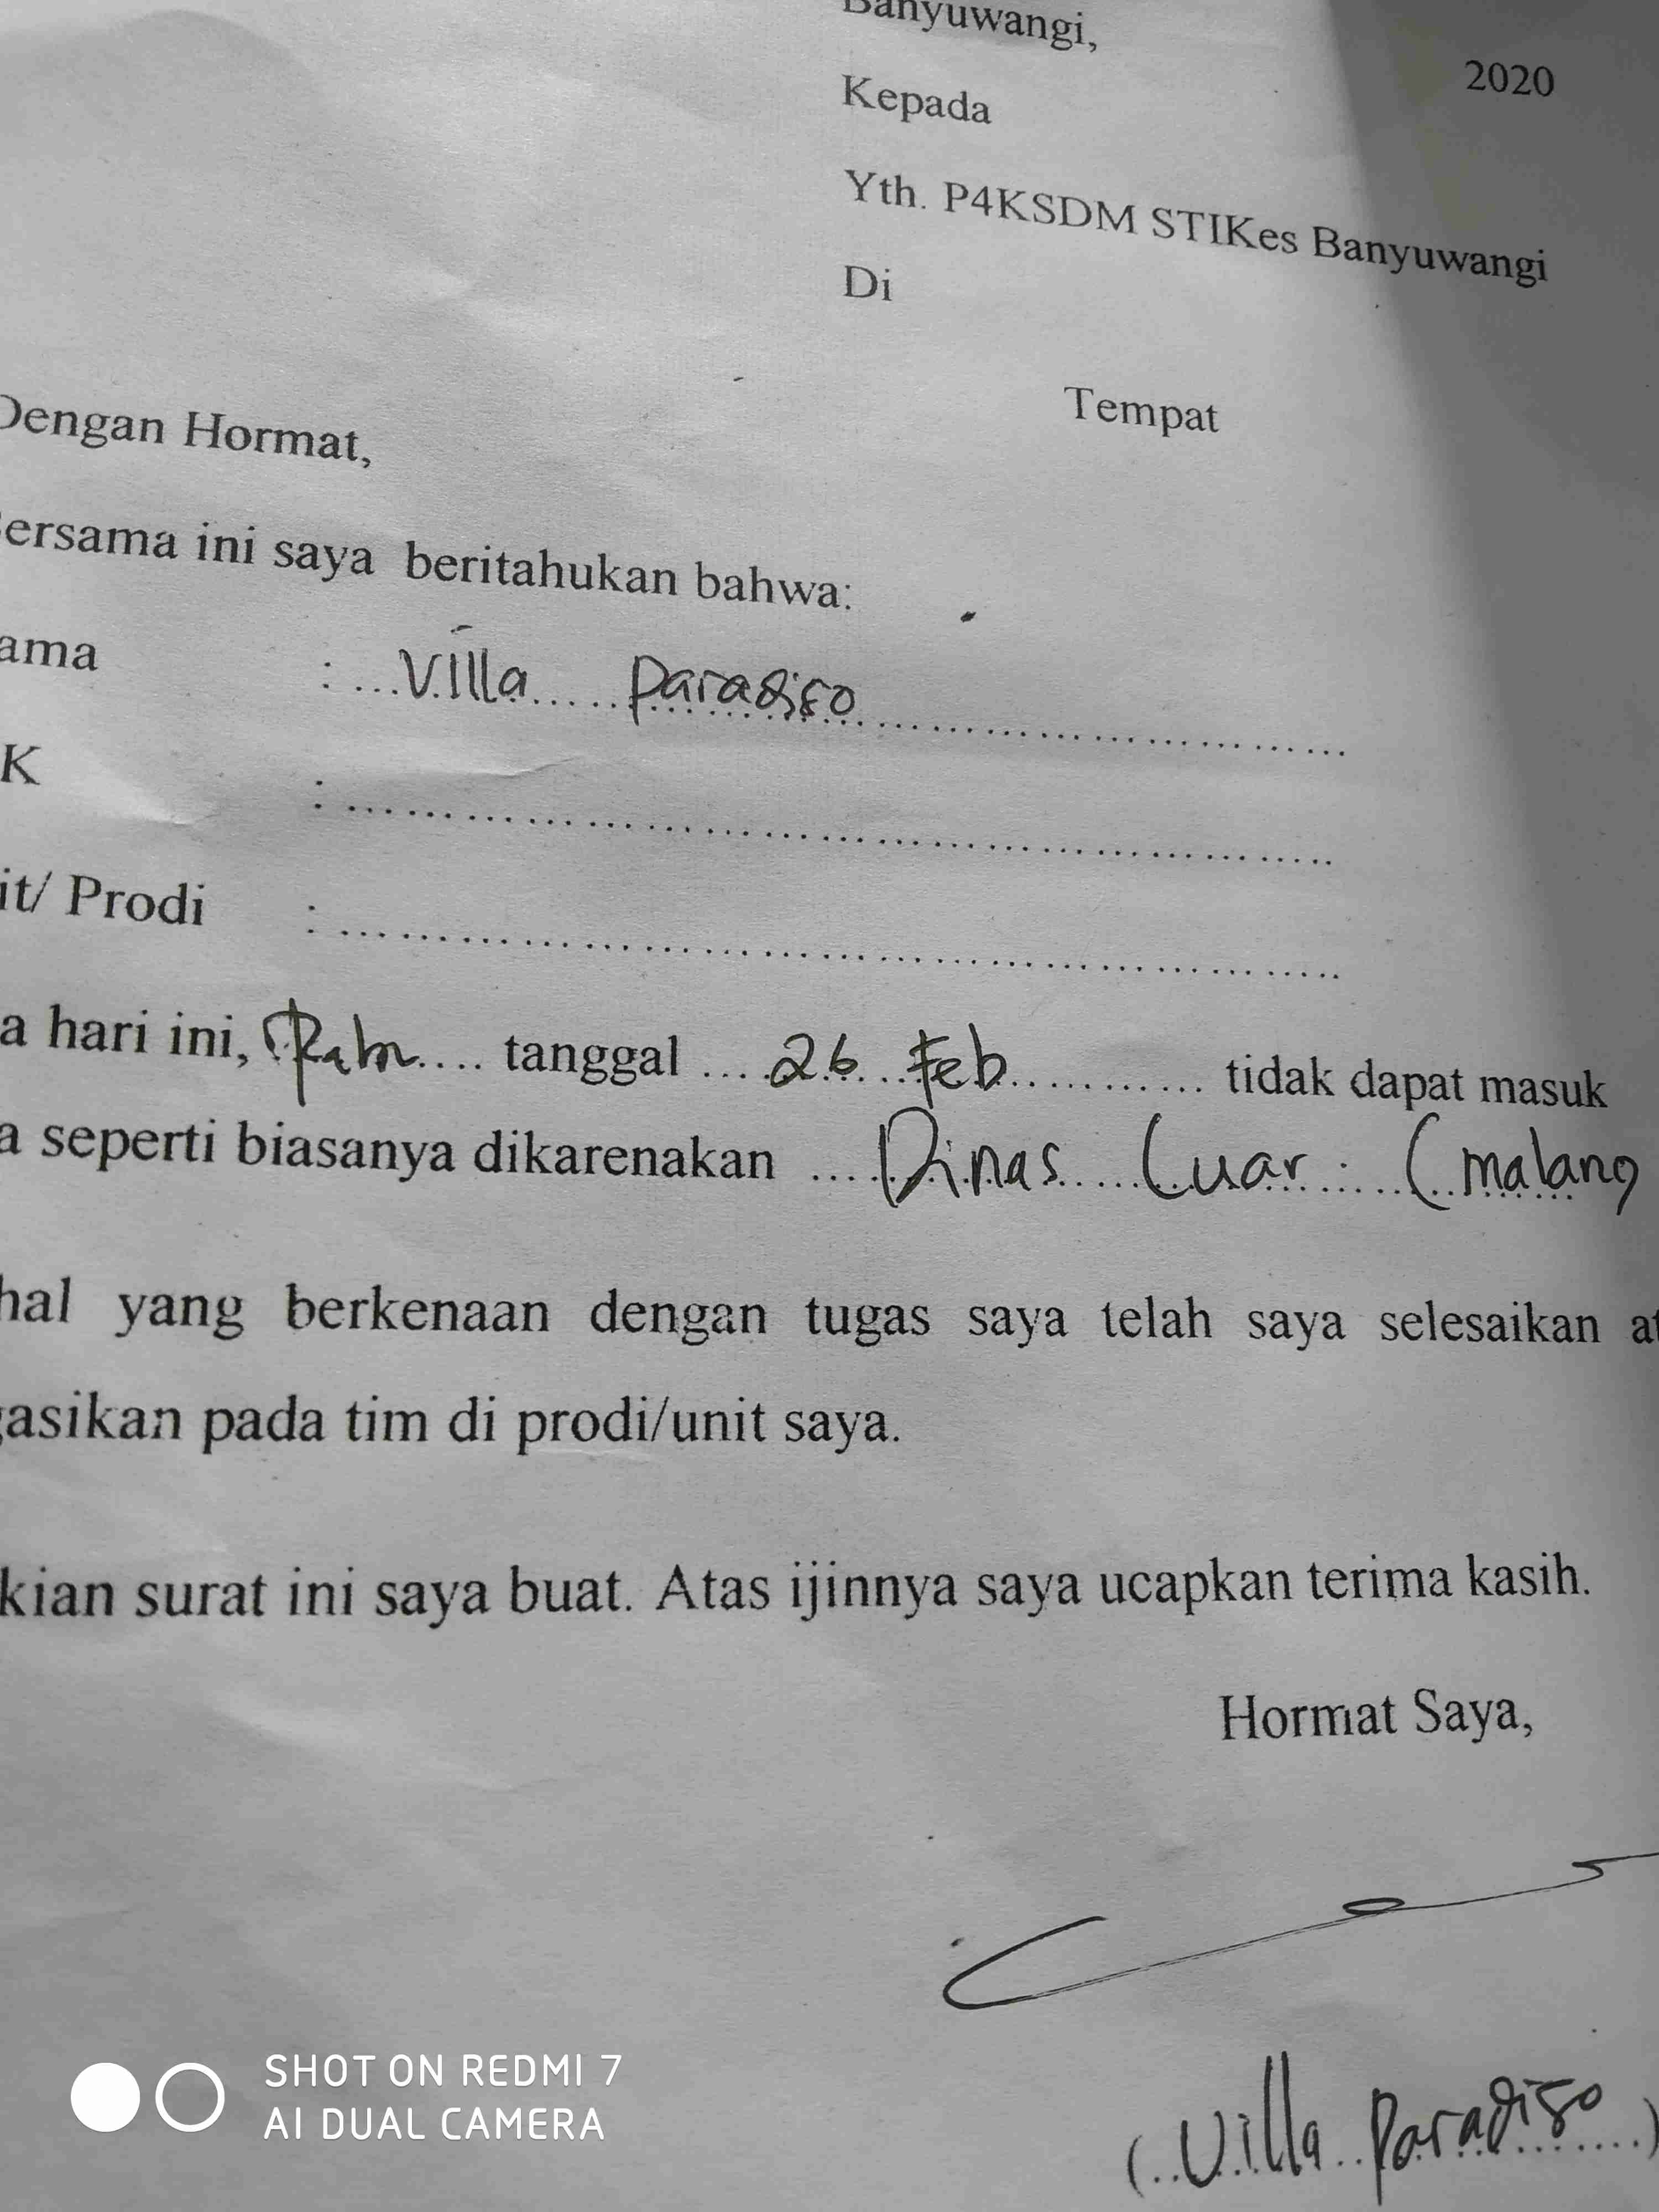 Banyuwangi, 2020
Kepada
Yth. P4KSDM STIKes Banyuwangi
Di
Tempat
Dengan Hormat,
Bersama ini saya beritahukan bahwa:
ama : Villa Paradiso
K :
it/ Prodi :
a hari ini, Rabu tanggal 26 Feb tidak dapat masuk
a seperti biasanya dikarenakan Dinas Luar (malang
hal yang berkenaan dengan tugas saya telah saya selesaikan at
gasikan pada tim di prodi/unit saya.
kian surat ini saya buat. Atas ijinnya saya ucapkan terima kasih.
Hormat Saya,
(Villa Paradiso)
SHOT ON REDMI 7
AI DUAL CAMERA